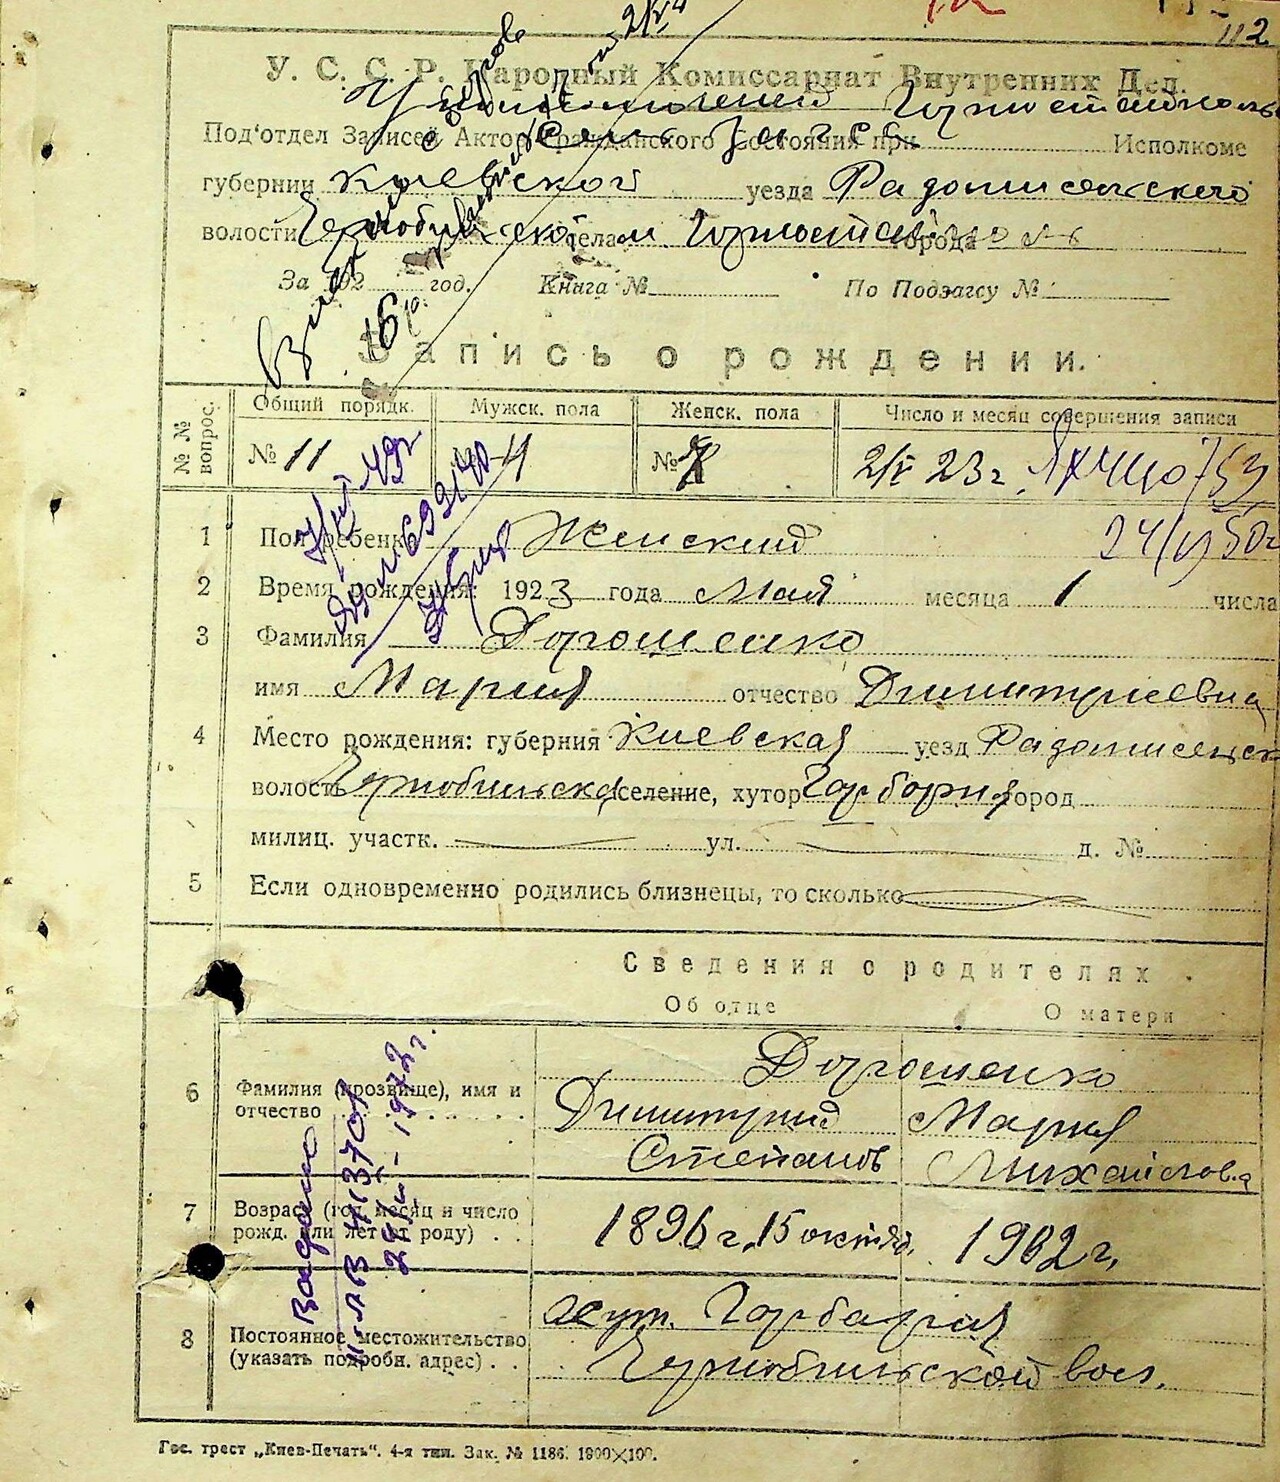 112
У. С. С. Р. Народный Комиссариат Внутренних Дел.
Под'отдел Записей Актов Гражданского Состояния при Исполкоме
губернии Киевской уезда Радомисельского
волости Чернобильской села
За 192 год. Книга № По Подзагсу №
Запись о рождении.
№ № вопрос. Общий порядк. Мужск. пола Женск. пола Число и месяц совершения записи
№ 11 № 2/V 23 г.
24/VI 50г
1 Пол ребенка Женский
2 Время рождения: 1923 года Мая месяца 1 числа
3 Фамилия Дорошенко
имя Мария отчество Димитриевна
4 Место рождения: губерния Киевская уезд Радомисельск
волость Чернобильская селение, хутор Горбария город
милиц. участк. ул. д. №
5 Если одновременно родились близнецы, то сколько
Сведения о родителях.
Об отце О матери
Дорошенко
6 Фамилия (прозвище), имя и отчество Димитрий Мария
Степанов Михайлова
7 Возраст (год, месяц и число рожд. или лет от роду) 1896 г. 15 октяб. 1902 г.
8 Постоянное местожительство (указать подробн. адрес) хут. Горбария
Чернобильской вол.
Видано
II-ЛВ 413701
1972 г.
Гос. трест „Киев-Печать". 4-я тип. Зак. № 1186. 1800×100.